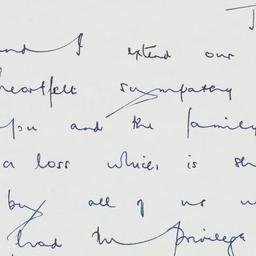 and I extend our
heartfelt sympathy
you and the family
a loss which is sh
by all of us w
had the privilege